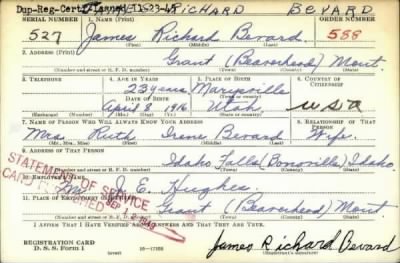 Dup-Reg-Cert. Issued 11-23-4 RICHARD BEVARD
SERIAL NUMBER 1. NAME (Print) ORDER NUMBER
527 James Richard Bevard. 588
(First) (Middle) (Last)
2. ADDRESS (Print)
Grant (Beaverhead) Mont.
3. TELEPHONE 4. AGE IN YEARS 5. PLACE OF BIRTH 6. COUNTRY OF CITIZENSHIP
23 years Marysville
DATE OF BIRTH
April 8 1916 Utah. USA
(Exchange) (No.) (Mo.) (Day) (Yr.) (State or country)
7. NAME OF PERSON WHO WILL ALWAYS KNOW YOUR ADDRESS 8. RELATIONSHIP OF THAT PERSON
Mrs Ruth Irene Bevard Wife.
(Mr., Mrs., Miss) (First) (Middle) (Last)
9. ADDRESS OF THAT PERSON
Idaho Falls (Bonneville) Idaho
10. EMPLOYER'S NAME
J. E. Hughes.
11. PLACE OF EMPLOYMENT OR BUSINESS
Grant (Beaverhead) Mont
STATEMENT OF SERVICE
CARD
SEP
I AFFIRM THAT I HAVE VERIFIED ABOVE ANSWERS AND THAT THEY ARE TRUE.
REGISTRATION CARD
D. S. S. Form 1 16—17105
James Richard Bevard
(Registrant's signature)